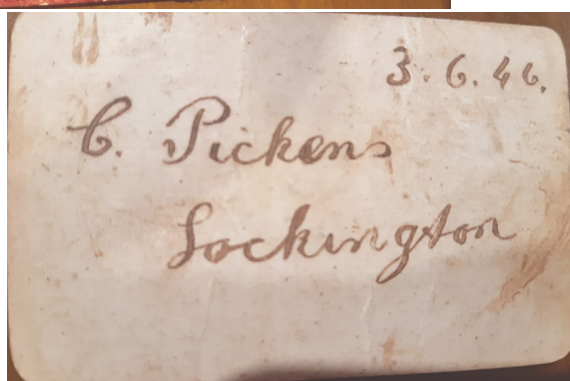 3.6.46.
C. Pickens
Lockington